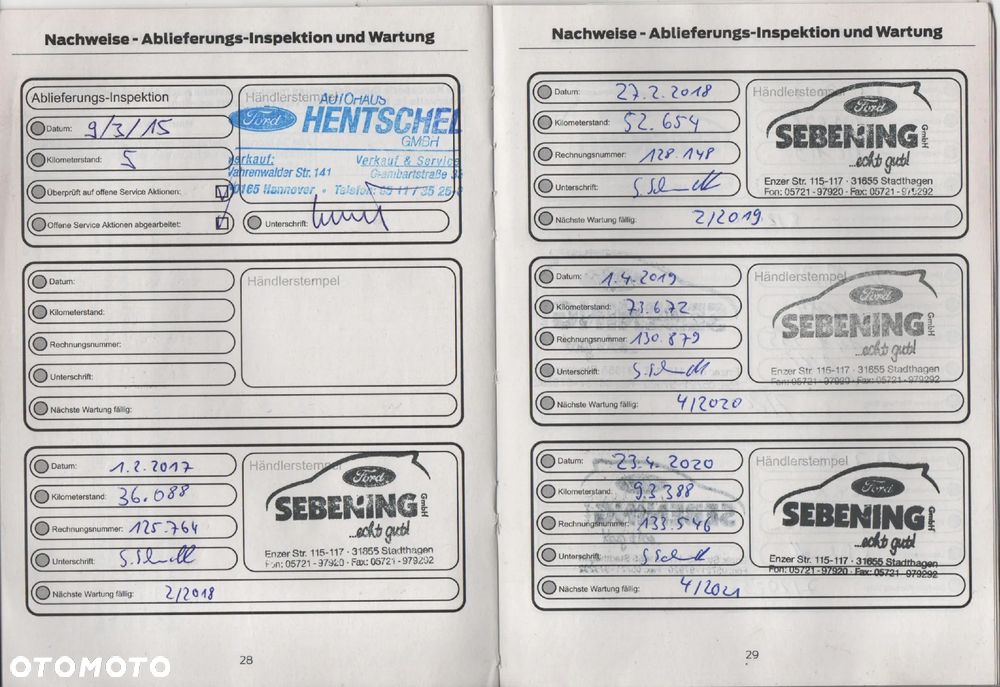 Nachweise - Ablieferungs-Inspektion und Wartung
Ablieferungs-Inspektion
Datum: 9/3/15
Kilometerstand: 5
Überprüft auf offene Service Aktionen:
Offene Service Aktionen abgearbeitet:
Händlerstempel
AUTOHAUS
Ford HENTSCHEL
GMBH
Verkauf & Service
Vahrenwalder Str. 141
30165 Hannover • Telefon
Unterschrift:
Datum:
Kilometerstand:
Rechnungsnummer:
Unterschrift:
Nächste Wartung fällig:
Händlerstempel
Datum: 1.2.2017
Kilometerstand: 36.088
Rechnungsnummer: 125.764
Unterschrift:
Nächste Wartung fällig: 2/2018
Händlerstempel
Ford
SEBENING GmbH
...echt gut!
Enzer Str. 115-117 · 31655 Stadthagen
Fon: 05721 - 97920 · Fax: 05721 - 979292
28
OTOMOTO
Nachweise - Ablieferungs-Inspektion und Wartung
Datum: 27.2.2018
Kilometerstand: 52.654
Rechnungsnummer: 128.148
Unterschrift:
Nächste Wartung fällig: 2/2019
Händlerstempel
Ford
SEBENING GmbH
...echt gut!
Enzer Str. 115-117 · 31655 Stadthagen
Fon: 05721 - 97920 · Fax: 05721 - 979292
Datum: 1.4.2019
Kilometerstand: 73.672
Rechnungsnummer: 130.879
Unterschrift:
Nächste Wartung fällig: 4/2020
Händlerstempel
Ford
SEBENING GmbH
...echt gut!
Enzer Str. 115-117 · 31655 Stadthagen
Fon: 05721 - 97920 · Fax: 05721 - 979292
Datum: 23.4.2020
Kilometerstand: 93.388
Rechnungsnummer: 133.546
Unterschrift:
Nächste Wartung fällig: 4/2021
Händlerstempel
Ford
SEBENING GmbH
...echt gut!
Enzer Str. 115-117 · 31655 Stadthagen
Fon: 05721 - 97920 · Fax: 05721 - 979292
29